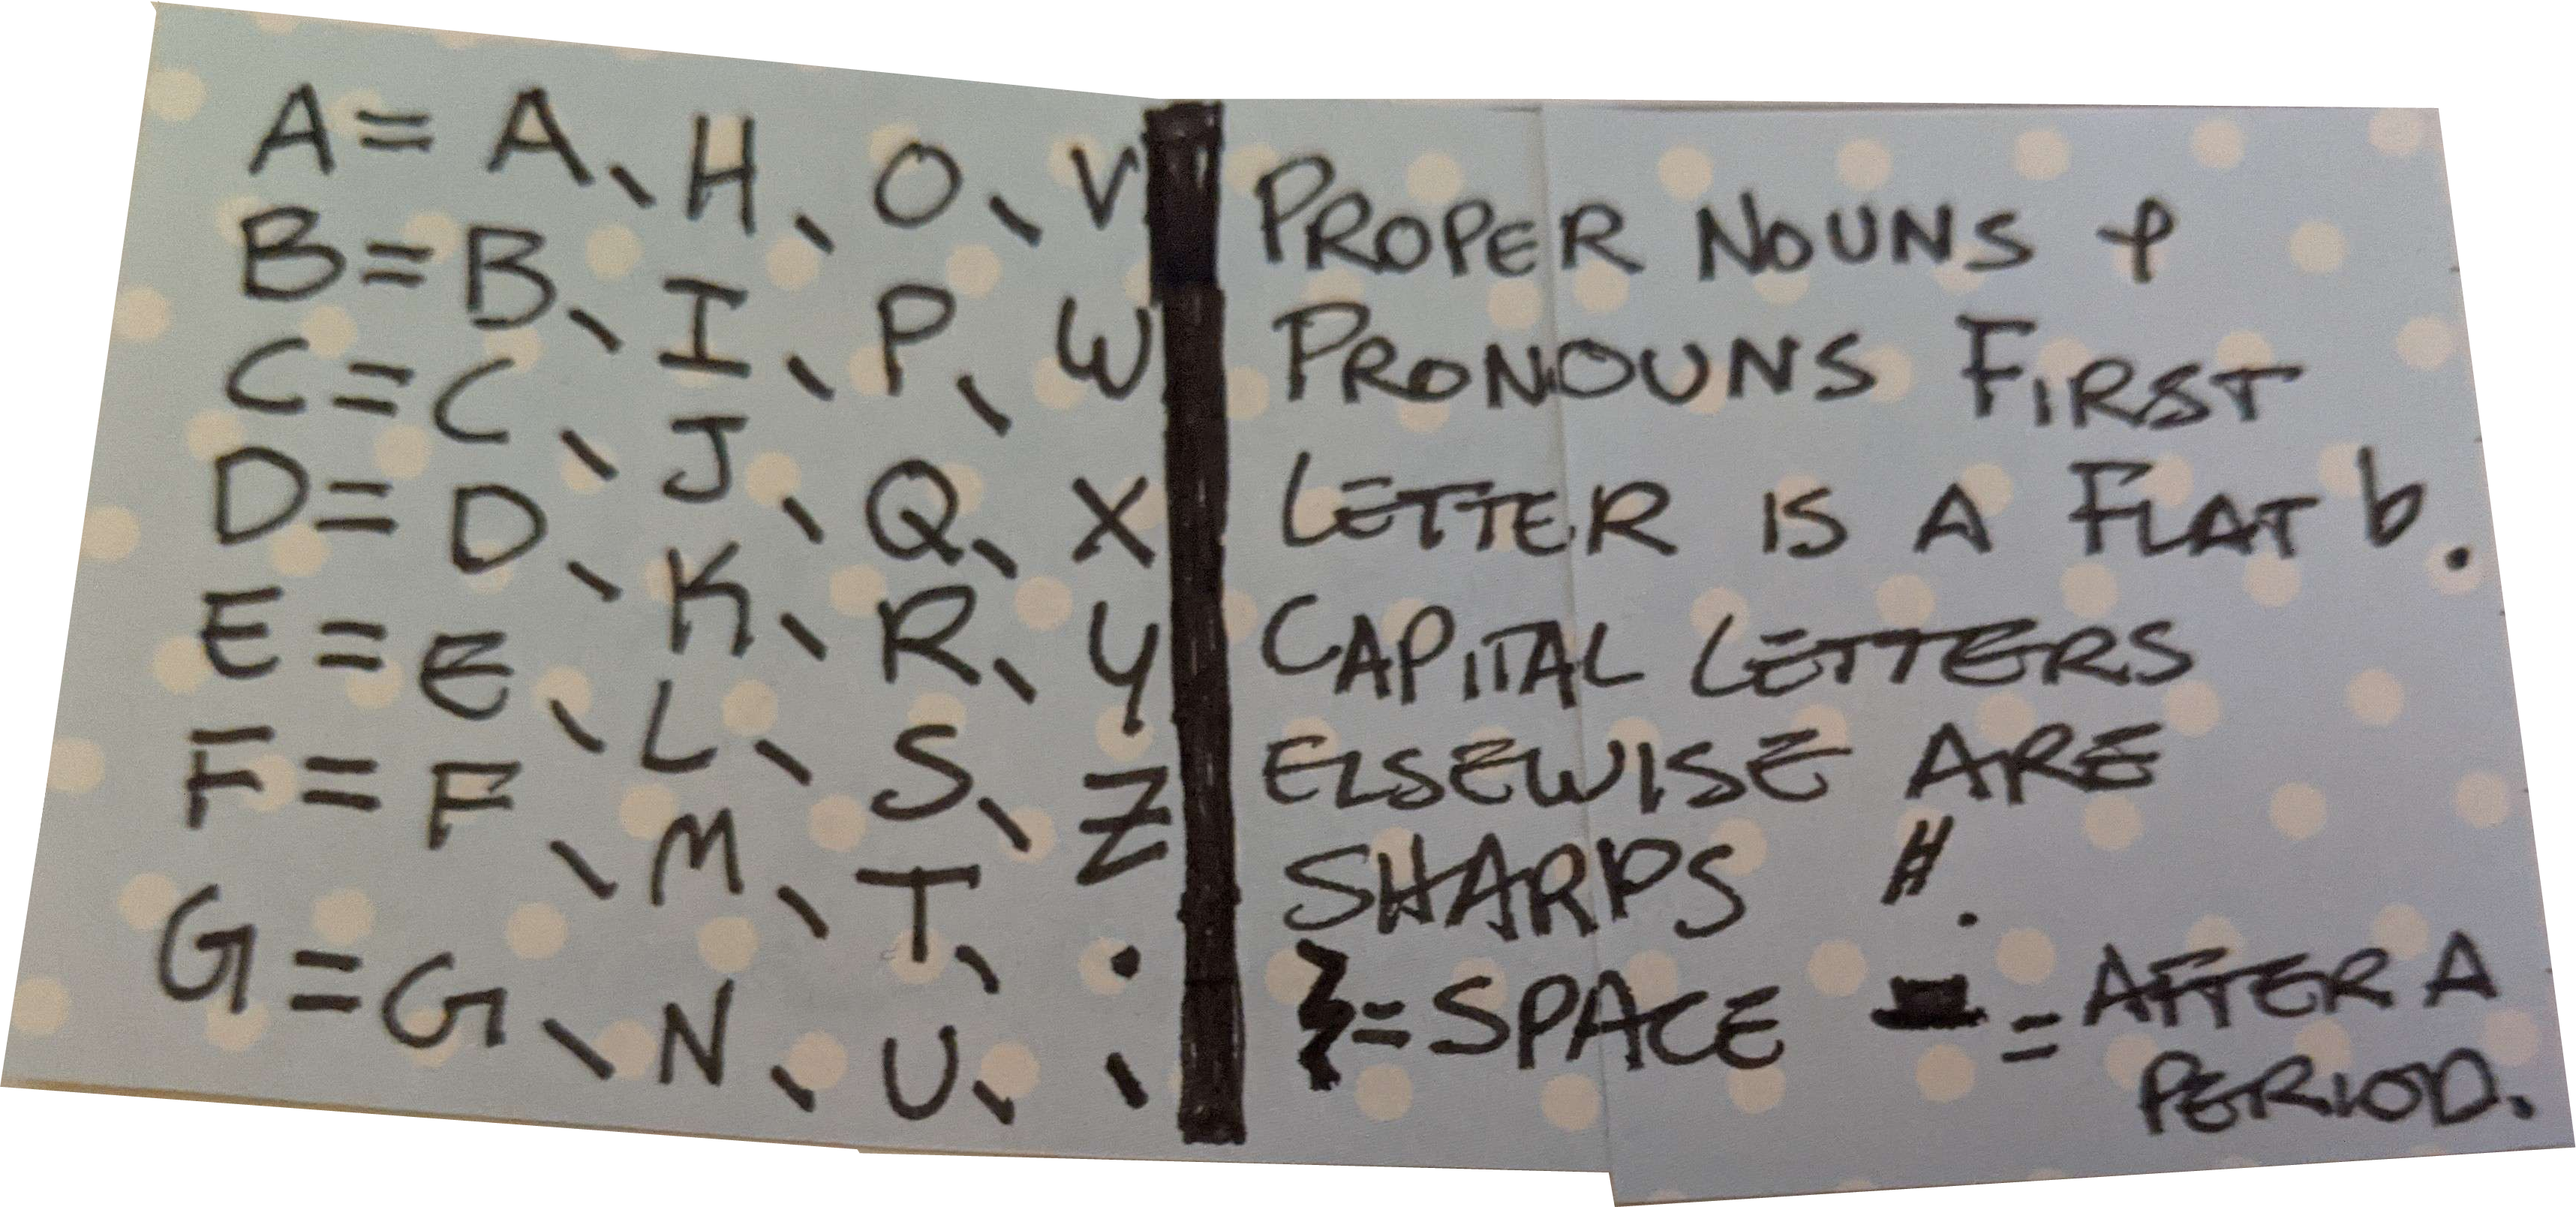 A = A, H, O, V
B = B, I, P, W
C = C, J, Q, X
D = D, K, R, Y
E = E, L, S, Z
F = F, M, T, .
G = G, N, U, ,
PROPER NOUNS &
PRONOUNS FIRST
LETTER IS A FLAT b.
CAPITAL LETTERS
ELSEWISE ARE
SHARPS #.
𝄽 = SPACE 𝄼 = AFTER A
PERIOD.